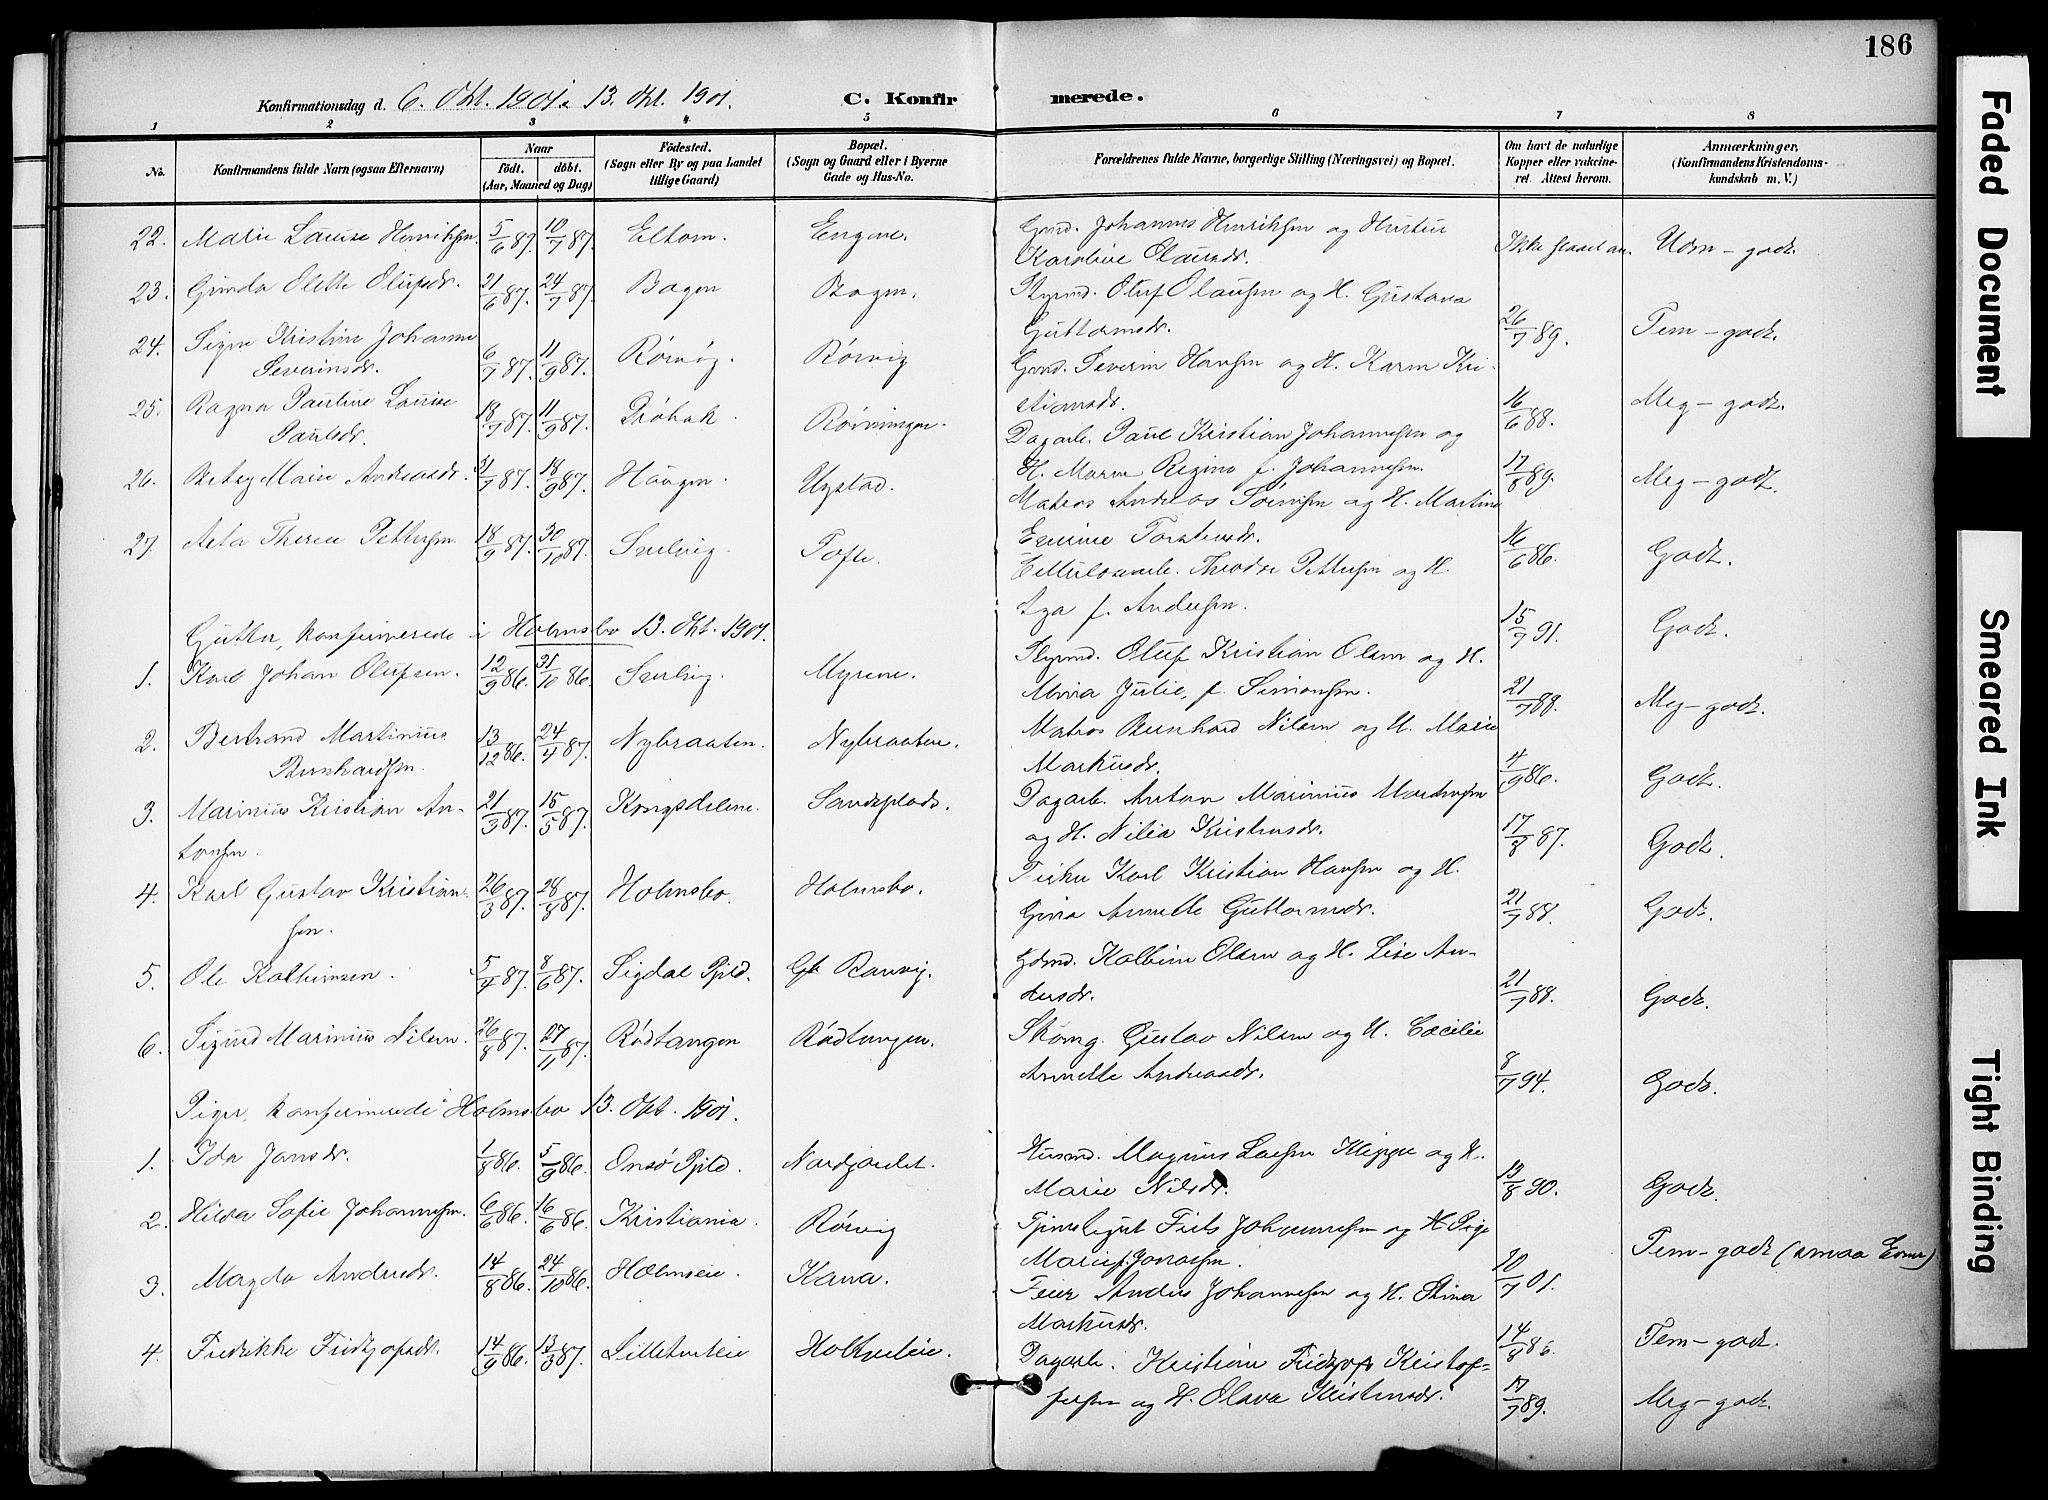 186
Konfirmationsdag d. 6. Okt. 1901 13. Okt. 1901. C. Konfirmerede.
1 2 3 4 5 6 7 8
No. Konfirmandens fulde Navn (ogsaa Efternavn) Naar født. døbt. (Aar, Maaned og Dag) Fødested. (Sogn eller By og paa Landet tillige Gaard) Bopæl. (Sogn og Gaard eller i Byerne Gade og Hus-No. Forældrenes fulde Navne, borgerlige Stilling (Næringsvei) og Bopæl. Om havt de naturlige Kopper eller vakcineret. Attest herom. Anmærkninger, (Konfirmandens Kristendomskundskab m. V.)
22. Marie Louise Henriksen. 5/6 87. 10/7 87. Engene. Gmd. Johannes Henriksen og Hustru
Karoline Olausdr. Ikke slaaet an. Udm-godt.
23. Gunda Olette Olufsdr. 21/6 87. 24/7 87. Bagen Bagen. Styrmd. Oluf Olausen og H. Gustava
Guttormsdr. 26/7 89. Tem-godt.
24. Signe Kristine Johanne
Severinsdr. 6/7 87. 11/9 87. Rørvig. Rørvig Gmd. Severin Hansen og H. Karen Kri-
stiansdr. 16/6 88. Meg-godt.
25. Ragna Pauline Louise
Paulsdr. 18/7 87. 11/9 87. Drøbak. Dagarb. Paul Kristian Johannesen og
H. Maren Regine f. Johannesen. 17/8 89. Meg-godt.
26. Betsy Marie Andreasdr. 31/7 87. 18/9 87. Haugen. Matros Andreas Sørensen og H. Martine
Torstensdr. 16/6 86. Godt.
27. Asta Therese Pettersen 18/9 87. 30/10 87. Tofte. Theodor Pettersen og H.
f. Andersen. 15/7 91. Godt.
Gutter, konfirmerede i Holmsbo 13. Okt. 1901.
1. Karl Johan Olufsen. 12/9 86. 31/10 86. Myrene. Styrmd. Oluf Kristian Olsen og H.
Mina Julie, f. Simonsen. 21/7 88. Meg-godt.
2. Bertrand Martinius
Bernhardsen. 13/12 86. 24/4 87. Nybraaten. Nybraaten. Matros Bernhard Nilsen og H. Marie
Markusdr. 4/9 86. Godt.
3. Marinius Kristian An-
tonsen. 21/3 87. 15/5 87. Kongsdelene. Sandsplads. Dagarb. Anton Marinius
og H. Nilia Kristensdr. 17/8 87. Godt.
4. Karl Gustav Kristian-
sen. 26/3 87. 28/8 87. Holmsbo. Holmsbo. Fisker Karl Kristian Hansen og H.
Gina Annette Guttormsdr. 21/7 88. Godt.
5. Ole Kolbinsen. 5/4 87. 8/6 87. Sigdal Pgld. Gdmd. Kolbin Olsen og H. Lise An-
dersdr. 21/7 88. Godt.
6. Sigurd Marinius Nilsen. 26/8 87. 27/11 87. Rødtangen Rødtangen. Skomg. Gustav Nilsen og H. Cæcilie
Annette Andreasdr. 8/7 94. Godt.
Piger, konfirmerede i Holmsbo 13. Okt. 1901.
1. Ida Jansdr. 1/8 86. 5/9 86. Onsø Pgld. Nordjordet. Husmd. Magnus Larsen Kleppe og H.
Marie Nilsdr. 13/8 90. Godt.
2. Hilda Sofie Johannesen. 6/6 86. 16/6 86. Kristiania. Rørvig Johannesen og H.
Marie f. Jonassen. 10/7 01. Tem-godt
3. Magda Andersdr. 14/8 86. 24/10 86. Kana. Feier Anders Johannesen og H. Stina
Markusdr. 14/8 86. Tem-godt.
4. Fredrikke Fridtjofsdr. 14/9 86. 13/3 87. Dagarb. Kristian Fridtjof Kristof-
fersen og H. Olava Kristensdr. 17/7 89. Meg-godt.
Faded Document
Smeared Ink
Tight Binding